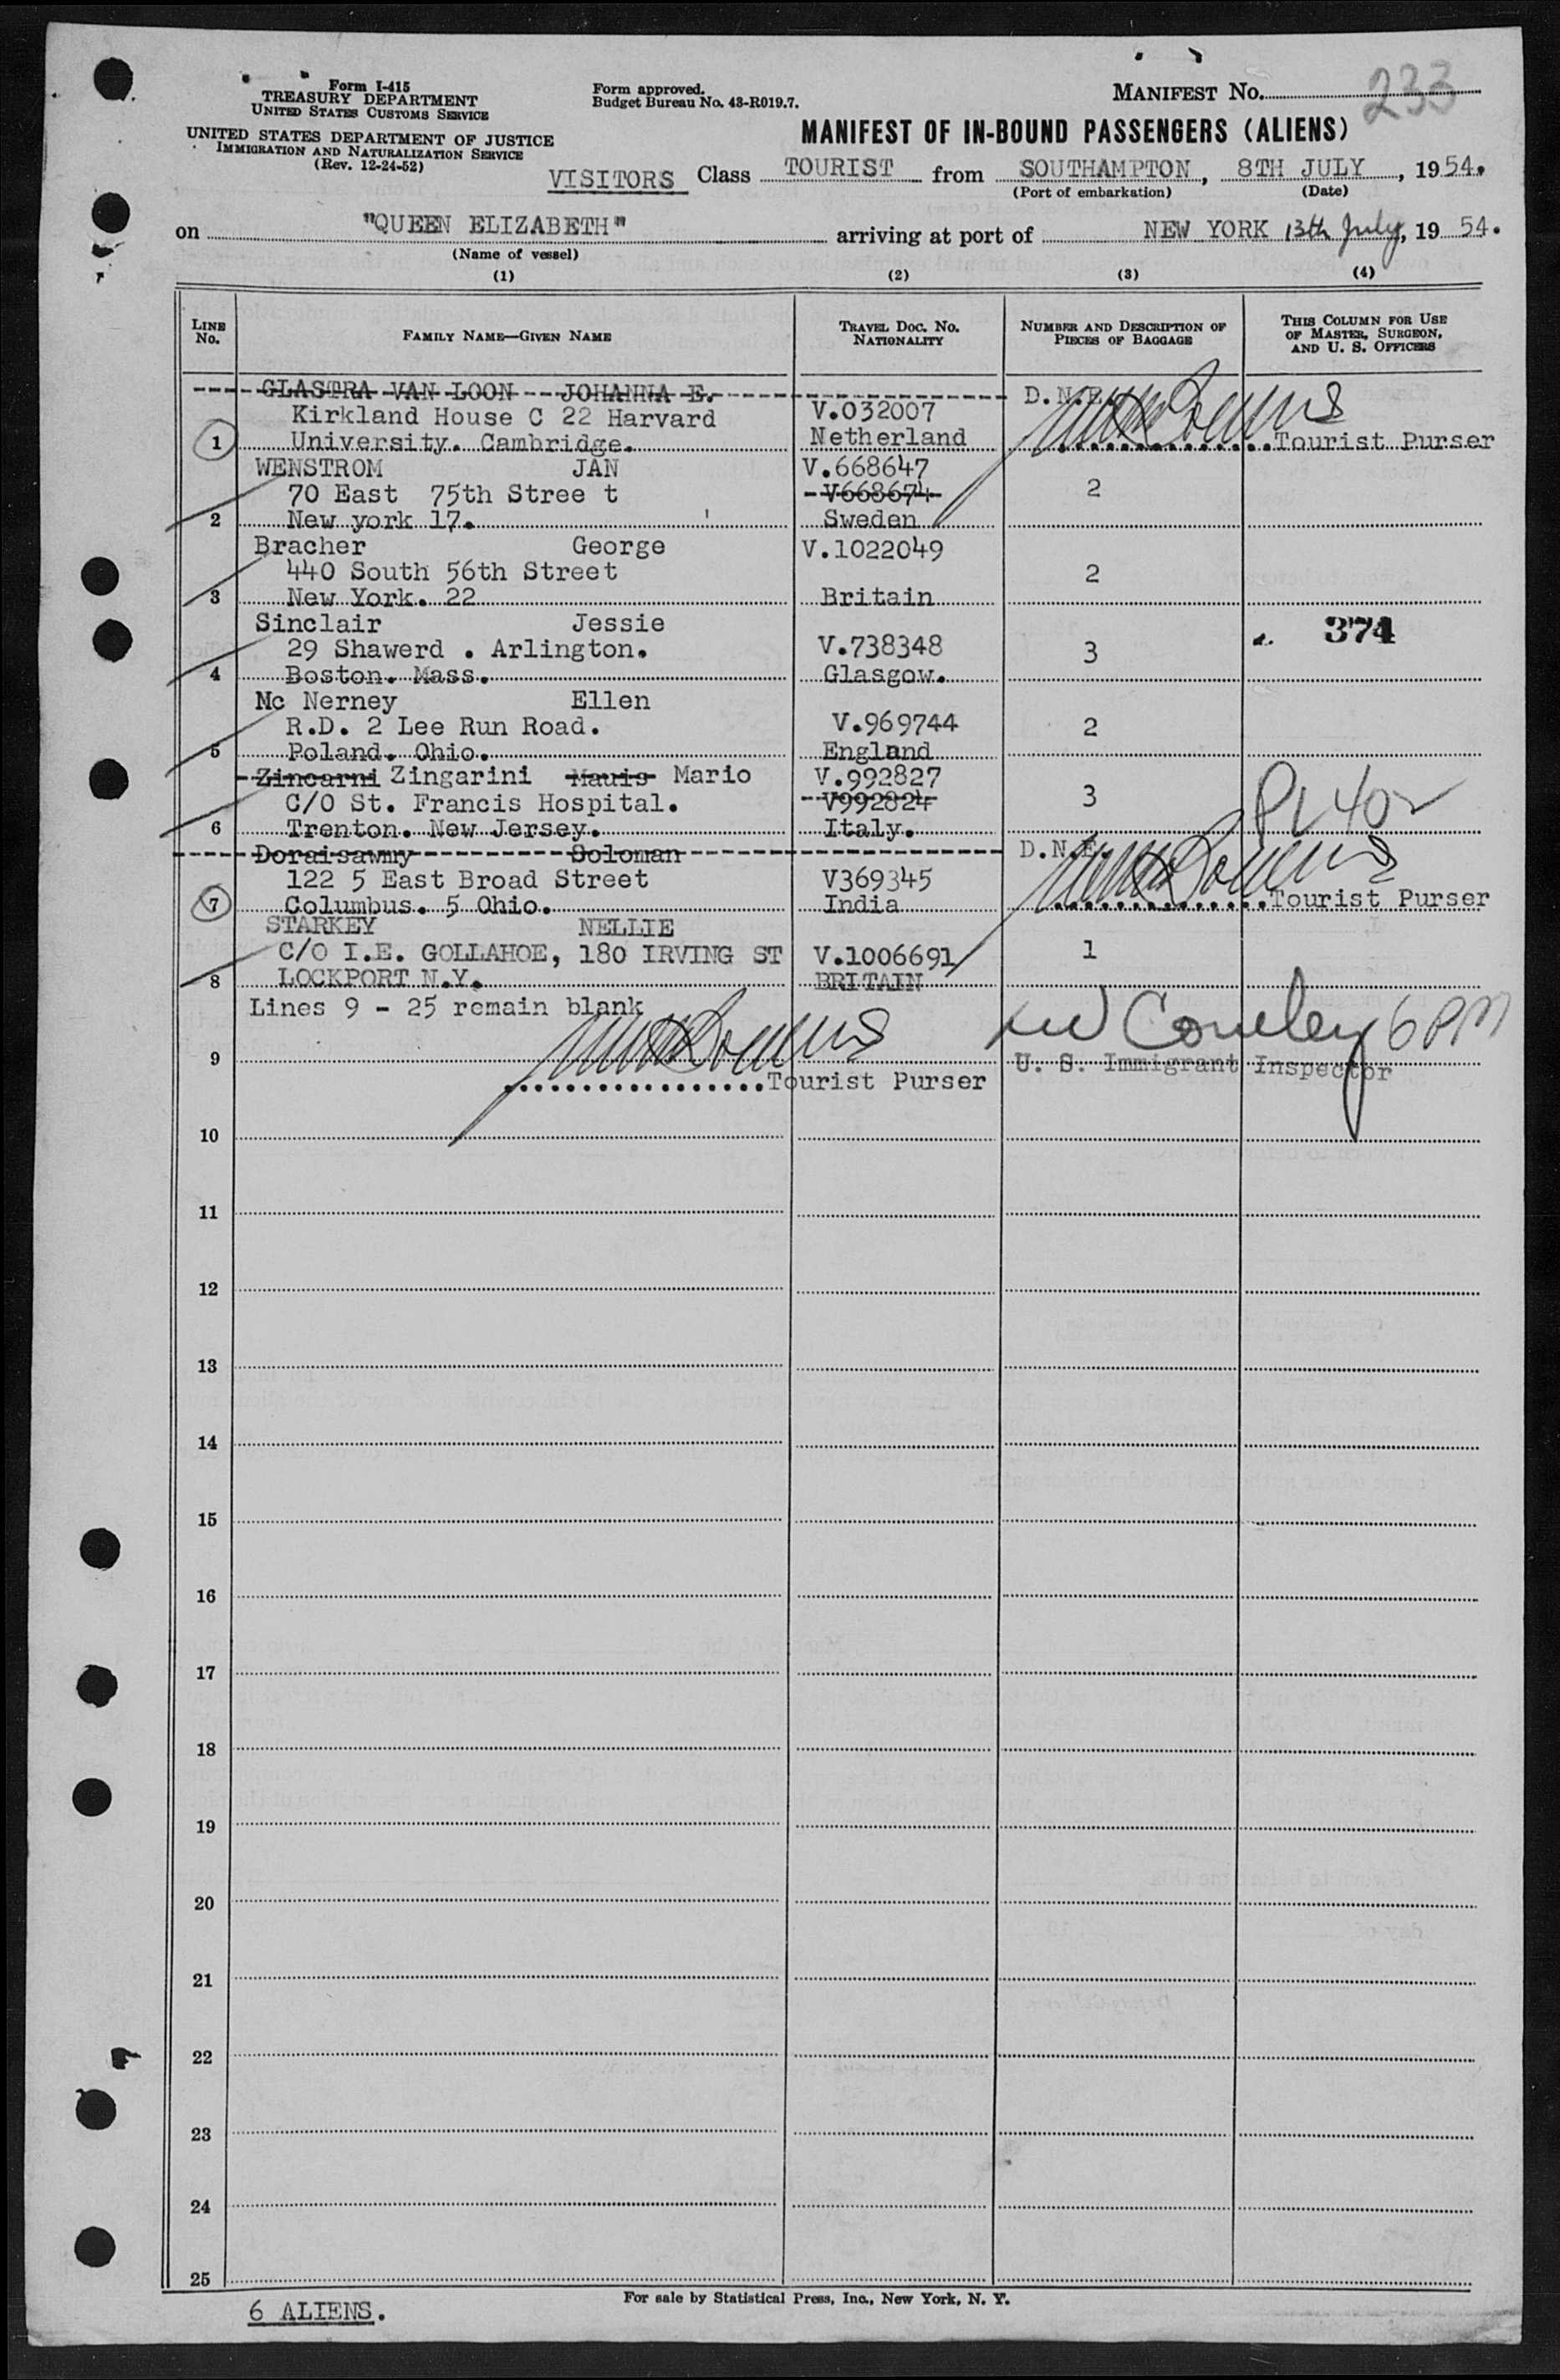 Form I-415
TREASURY DEPARTMENT
UNITED STATES CUSTOMS SERVICE
UNITED STATES DEPARTMENT OF JUSTICE
IMMIGRATION AND NATURALIZATION SERVICE
(Rev. 12-24-52)
Form approved.
Budget Bureau No. 43-R019.7.
MANIFEST NO. 233
MANIFEST OF IN-BOUND PASSENGERS (ALIENS)
VISITORS Class TOURIST from SOUTHAMPTON, 8TH JULY, 1954.
(Port of embarkation) (Date)
on "QUEEN ELIZABETH" arriving at port of NEW YORK 13th July, 19 54.
(Name of vessel)
(1) (2) (3) (4)
LINE No. FAMILY NAME—GIVEN NAME TRAVEL DOC. NO. NATIONALITY NUMBER AND DESCRIPTION OF PIECES OF BAGGAGE THIS COLUMN FOR USE OF MASTER, SURGEON, AND U. S. OFFICERS
GLASTRA VAN LOON JOHANNA E. D.N.E.
Kirkland House C 22 Harvard V.032007
1 University. Cambridge. Netherland Tourist Purser
WENSTROM JAN V.668647
70 East 75th Stree t V668674 2
2 New york 17. Sweden
Bracher George V.1022049
440 South 56th Street 2
3 New York. 22 Britain
Sinclair Jessie 374
29 Shawerd . Arlington. V.738348 3
4 Boston. Mass. Glasgow.
Mc Nerney Ellen
R.D. 2 Lee Run Road. V.969744 2
5 Poland. Ohio. England
Zincarni Zingarini Mauis Mario V.992827
C/O St. Francis Hospital. V992824 3
6 Trenton. New Jersey. Italy.
Doraisawmy Soloman D.N.E.
122 5 East Broad Street V369345
7 Columbus. 5 Ohio. India Tourist Purser
STARKEY NELLIE
C/O I.E. GOLLAHOE, 180 IRVING ST V.1006691 1
8 LOCKPORT N.Y. BRITAIN
Lines 9 - 25 remain blank
6 PM
9 U. S. Immigrant Inspector
Tourist Purser
10
11
12
13
14
15
16
17
18
19
20
21
22
23
24
25
6 ALIENS.
For sale by Statistical Press, Inc., New York, N. Y.